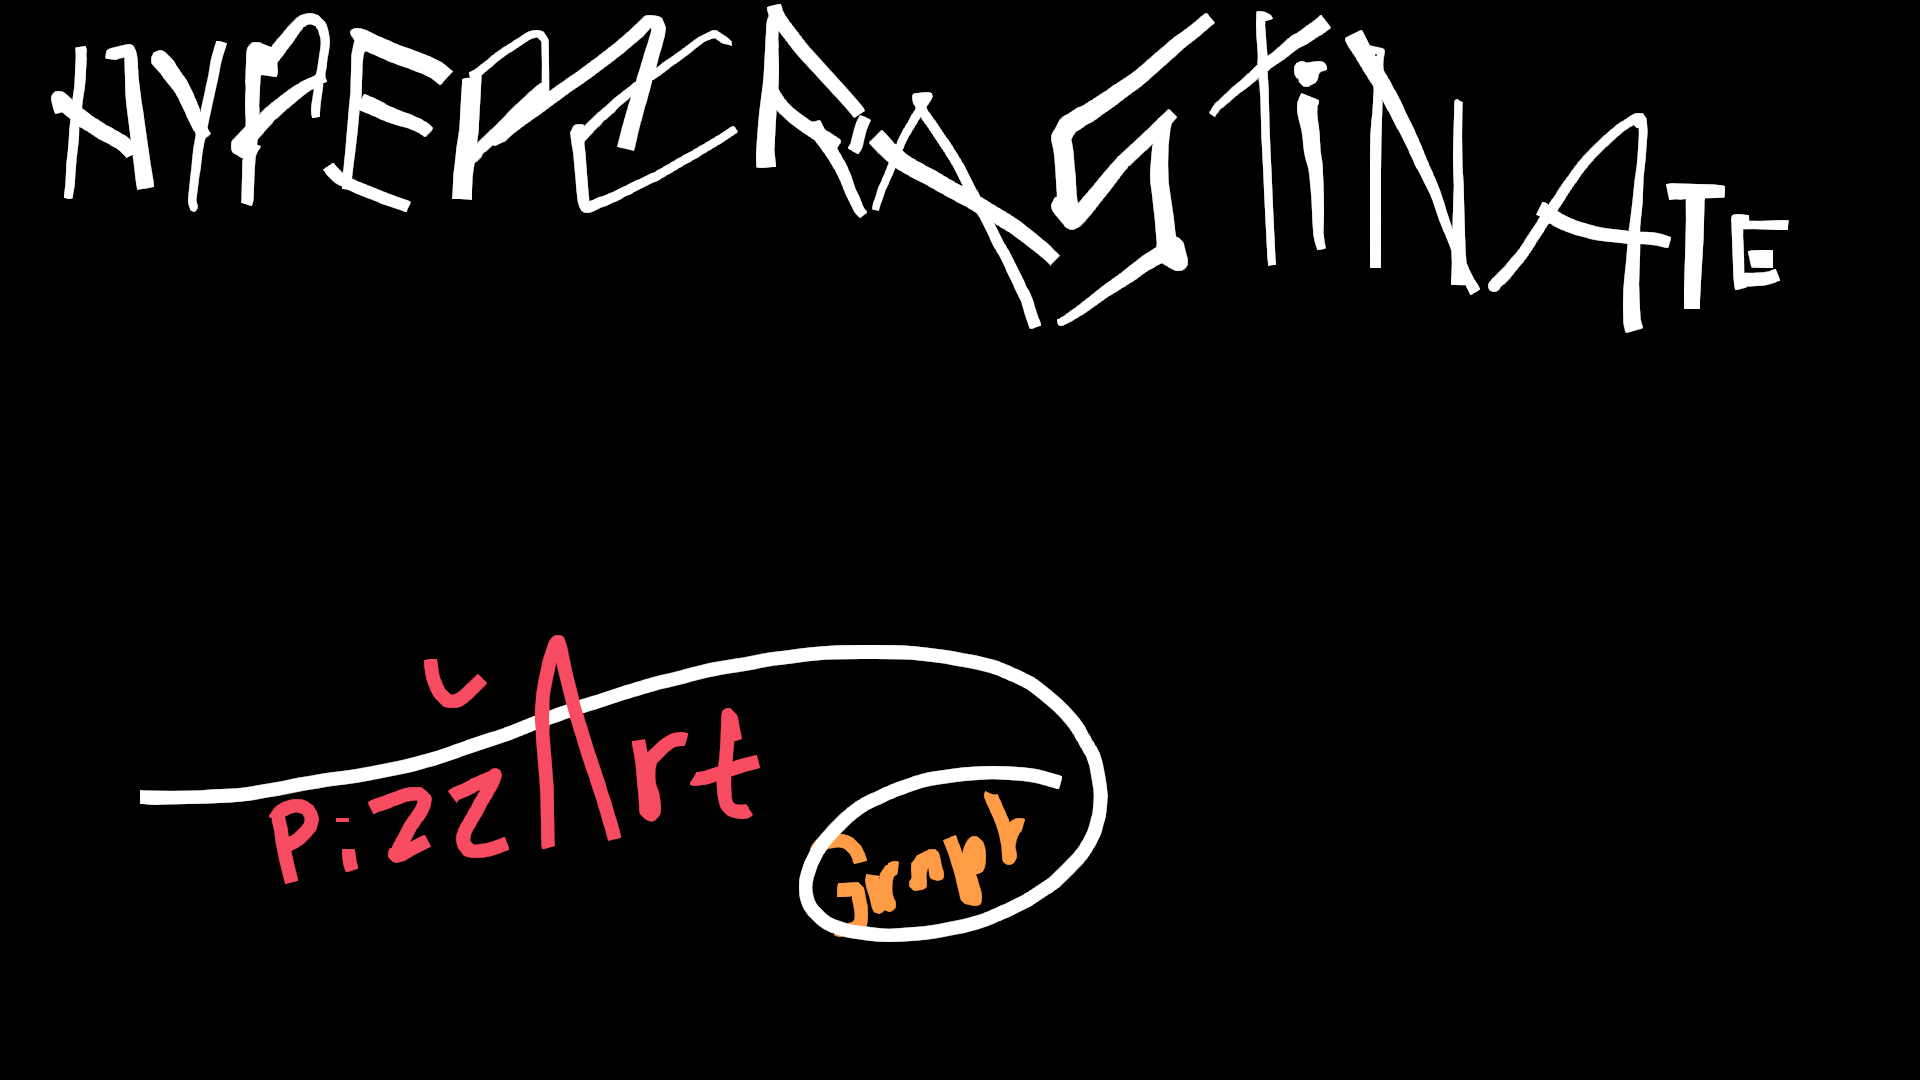 HYPERCRASTiNATE
PizzArt
Graph